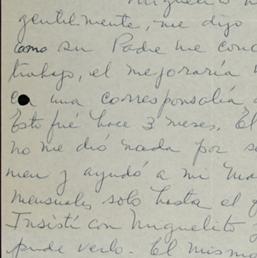 Miguelito
gentilmente, me dijo
como su Padre me cono
trabajo, el mejoraría
con una corresponsalía
Esto fué hace 3 meses. El
no me dió nada por s
men y ayudó a mi Ma
mensuales solo hasta el
Insistí con Miguelito
pude verlo. El mismo